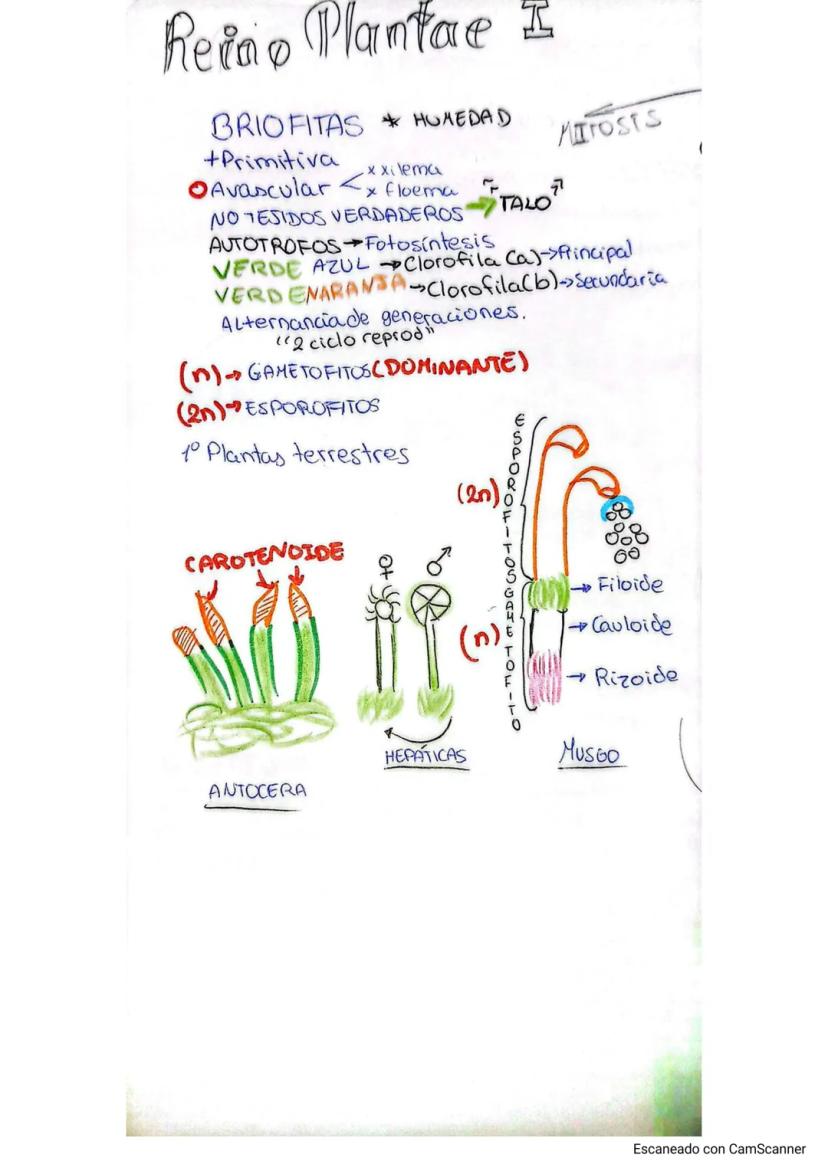 Reino Plantae I
BRIOFITAS * HUMEDAD
MITOSIS
+Primitiva
Avascular < x xilema
x floema
NO TEJIDOS VERDADEROS → "TALO"
AUTOTROFOS → Fotosíntesis
VERDE AZUL → Clorofila (a) → Principal
VERDE NARANJA → Clorofila (b) → Secundaria
Alternancia de generaciones.
"2 ciclo reprod"
(n) → GAMETOFITOS (DOMINANTE)
(2n) → ESPOROFITOS
1º Plantas terrestres
ESPOROFITOS
(2n)
CAROTENOIDE
♀ ♂
GAMETOFITO
(n)
→ Filoide
→ Cauloide
→ Rizoide
HEPÁTICAS
MUSGO
ANTOCERA
Escaneado con CamScanner